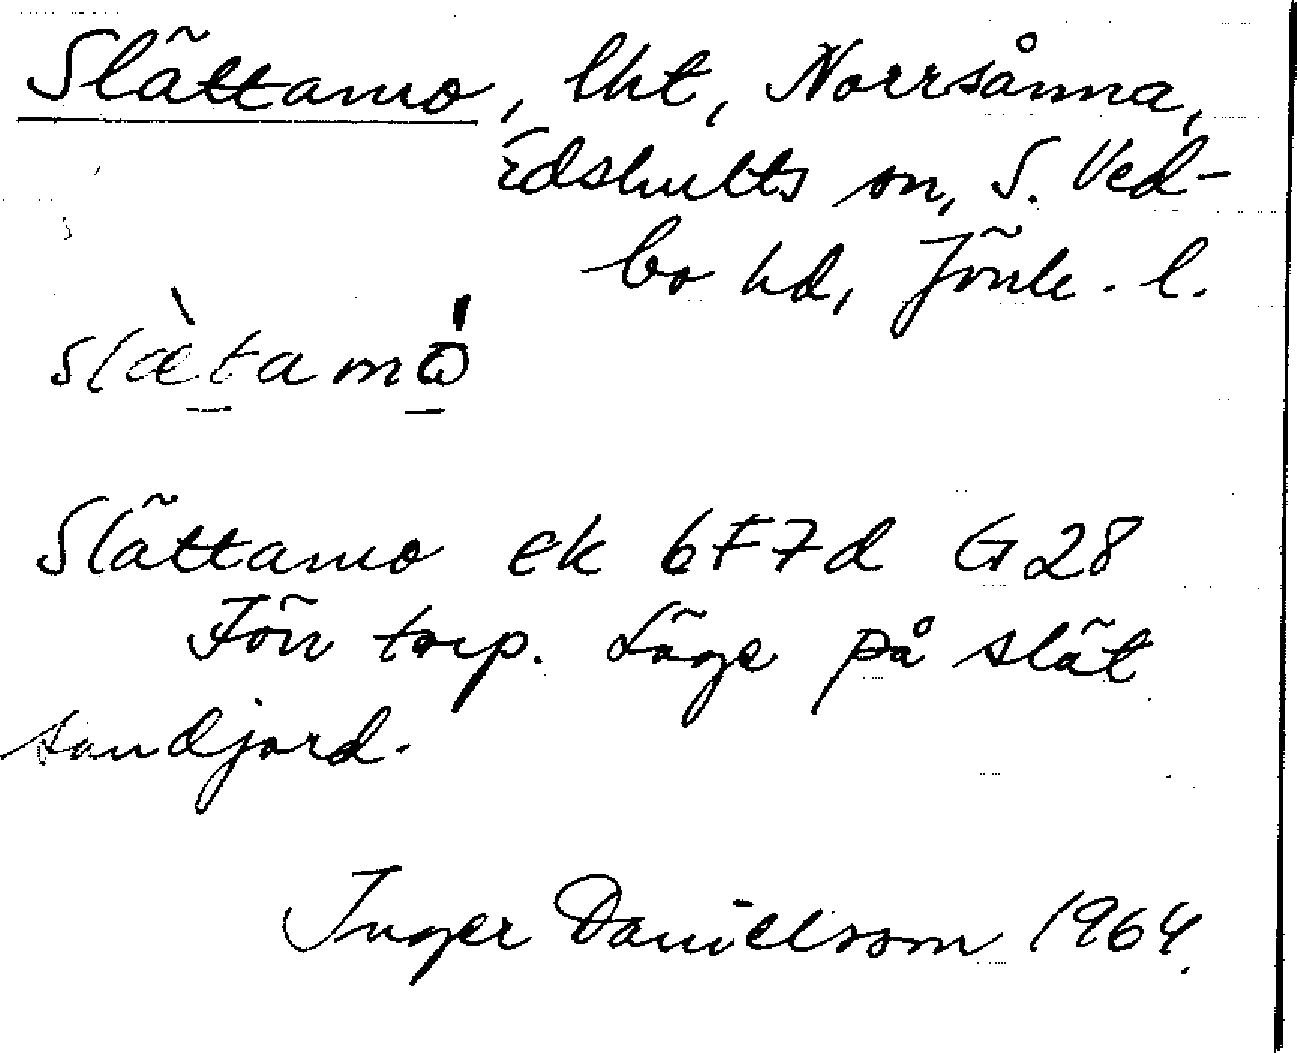 Slättamo, lht, Norrsånna,
Edshults sn, S. Ved-
bo hd, Jönk. l.
slæ̀tamὼ
Slättamo ek 6F7d G28
Förr torp. Läge på slät
sandjord.
Inger Danielsson 1964.